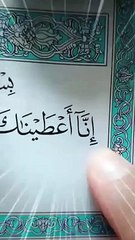 بِسْ
إِنَّآ أَعْطَيْنَـٰكَ